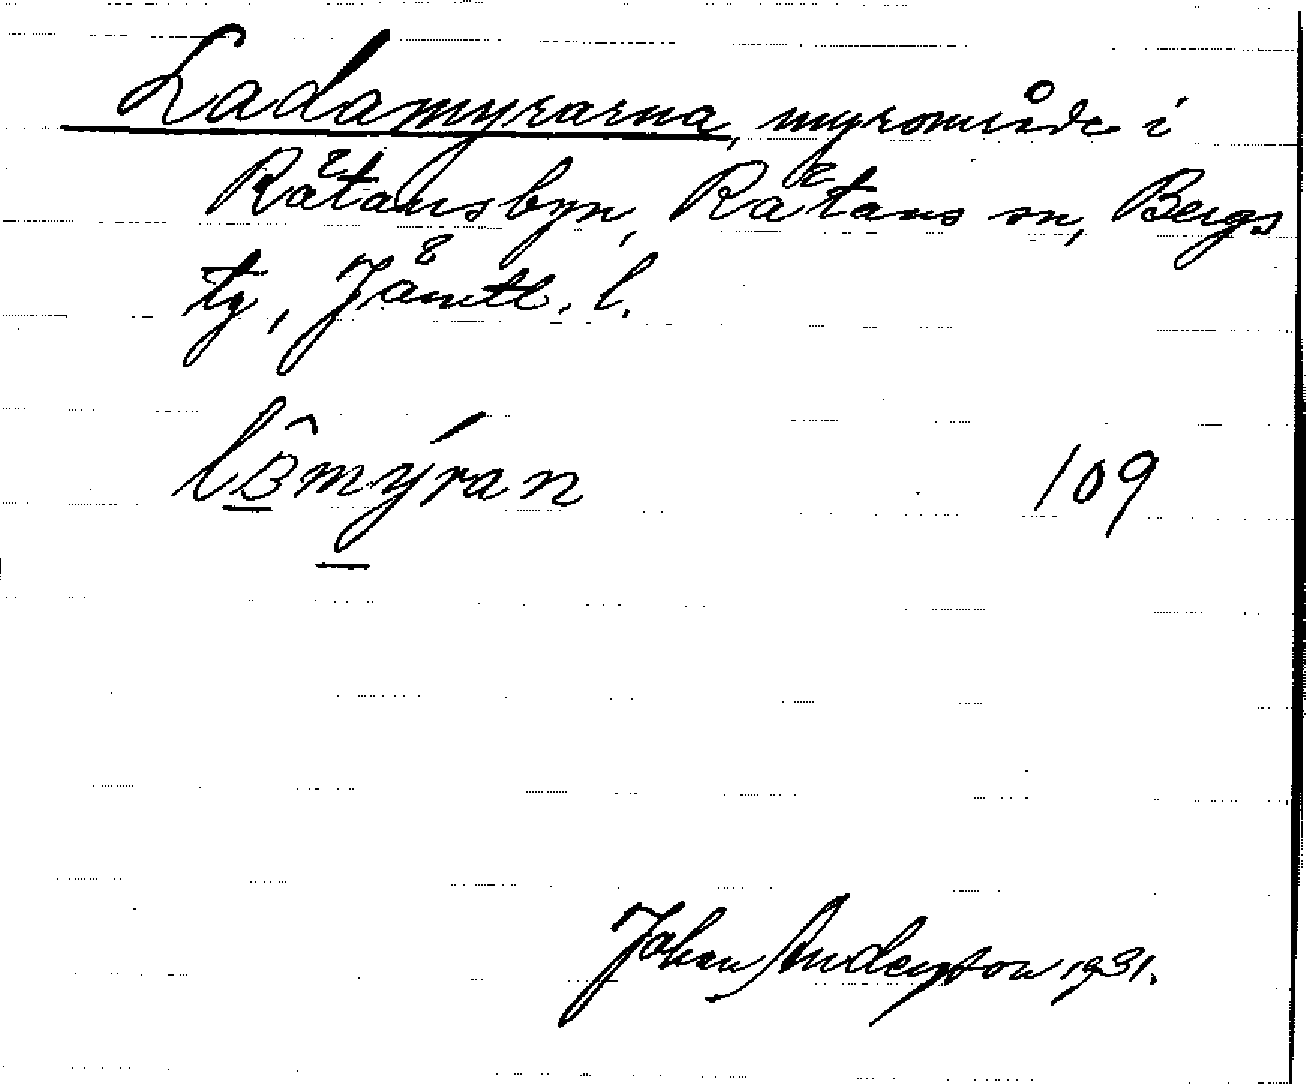 Ladamyrarna, myrområde i
Rätansbyn, Rätans sn, Bergs
tg, Jämtl. l.
109
Johan Anderson 1931.